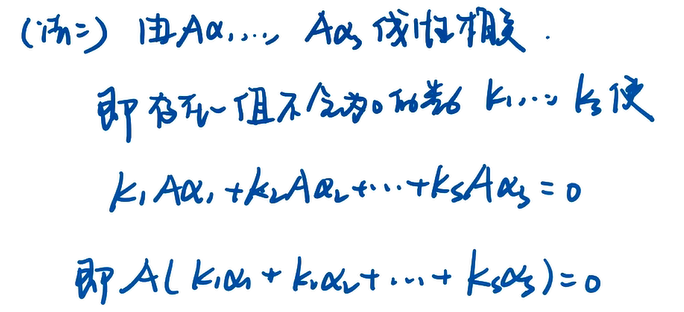 (法二) 由Aα₁,…, Aαₛ 线性相关.
即存在一组不全为0的数 k₁,…kₛ使
k₁Aα₁+k₂Aα₂+…+kₛAαₛ=0
即A(k₁α₁+k₂α₂+…+kₛαₛ)=0